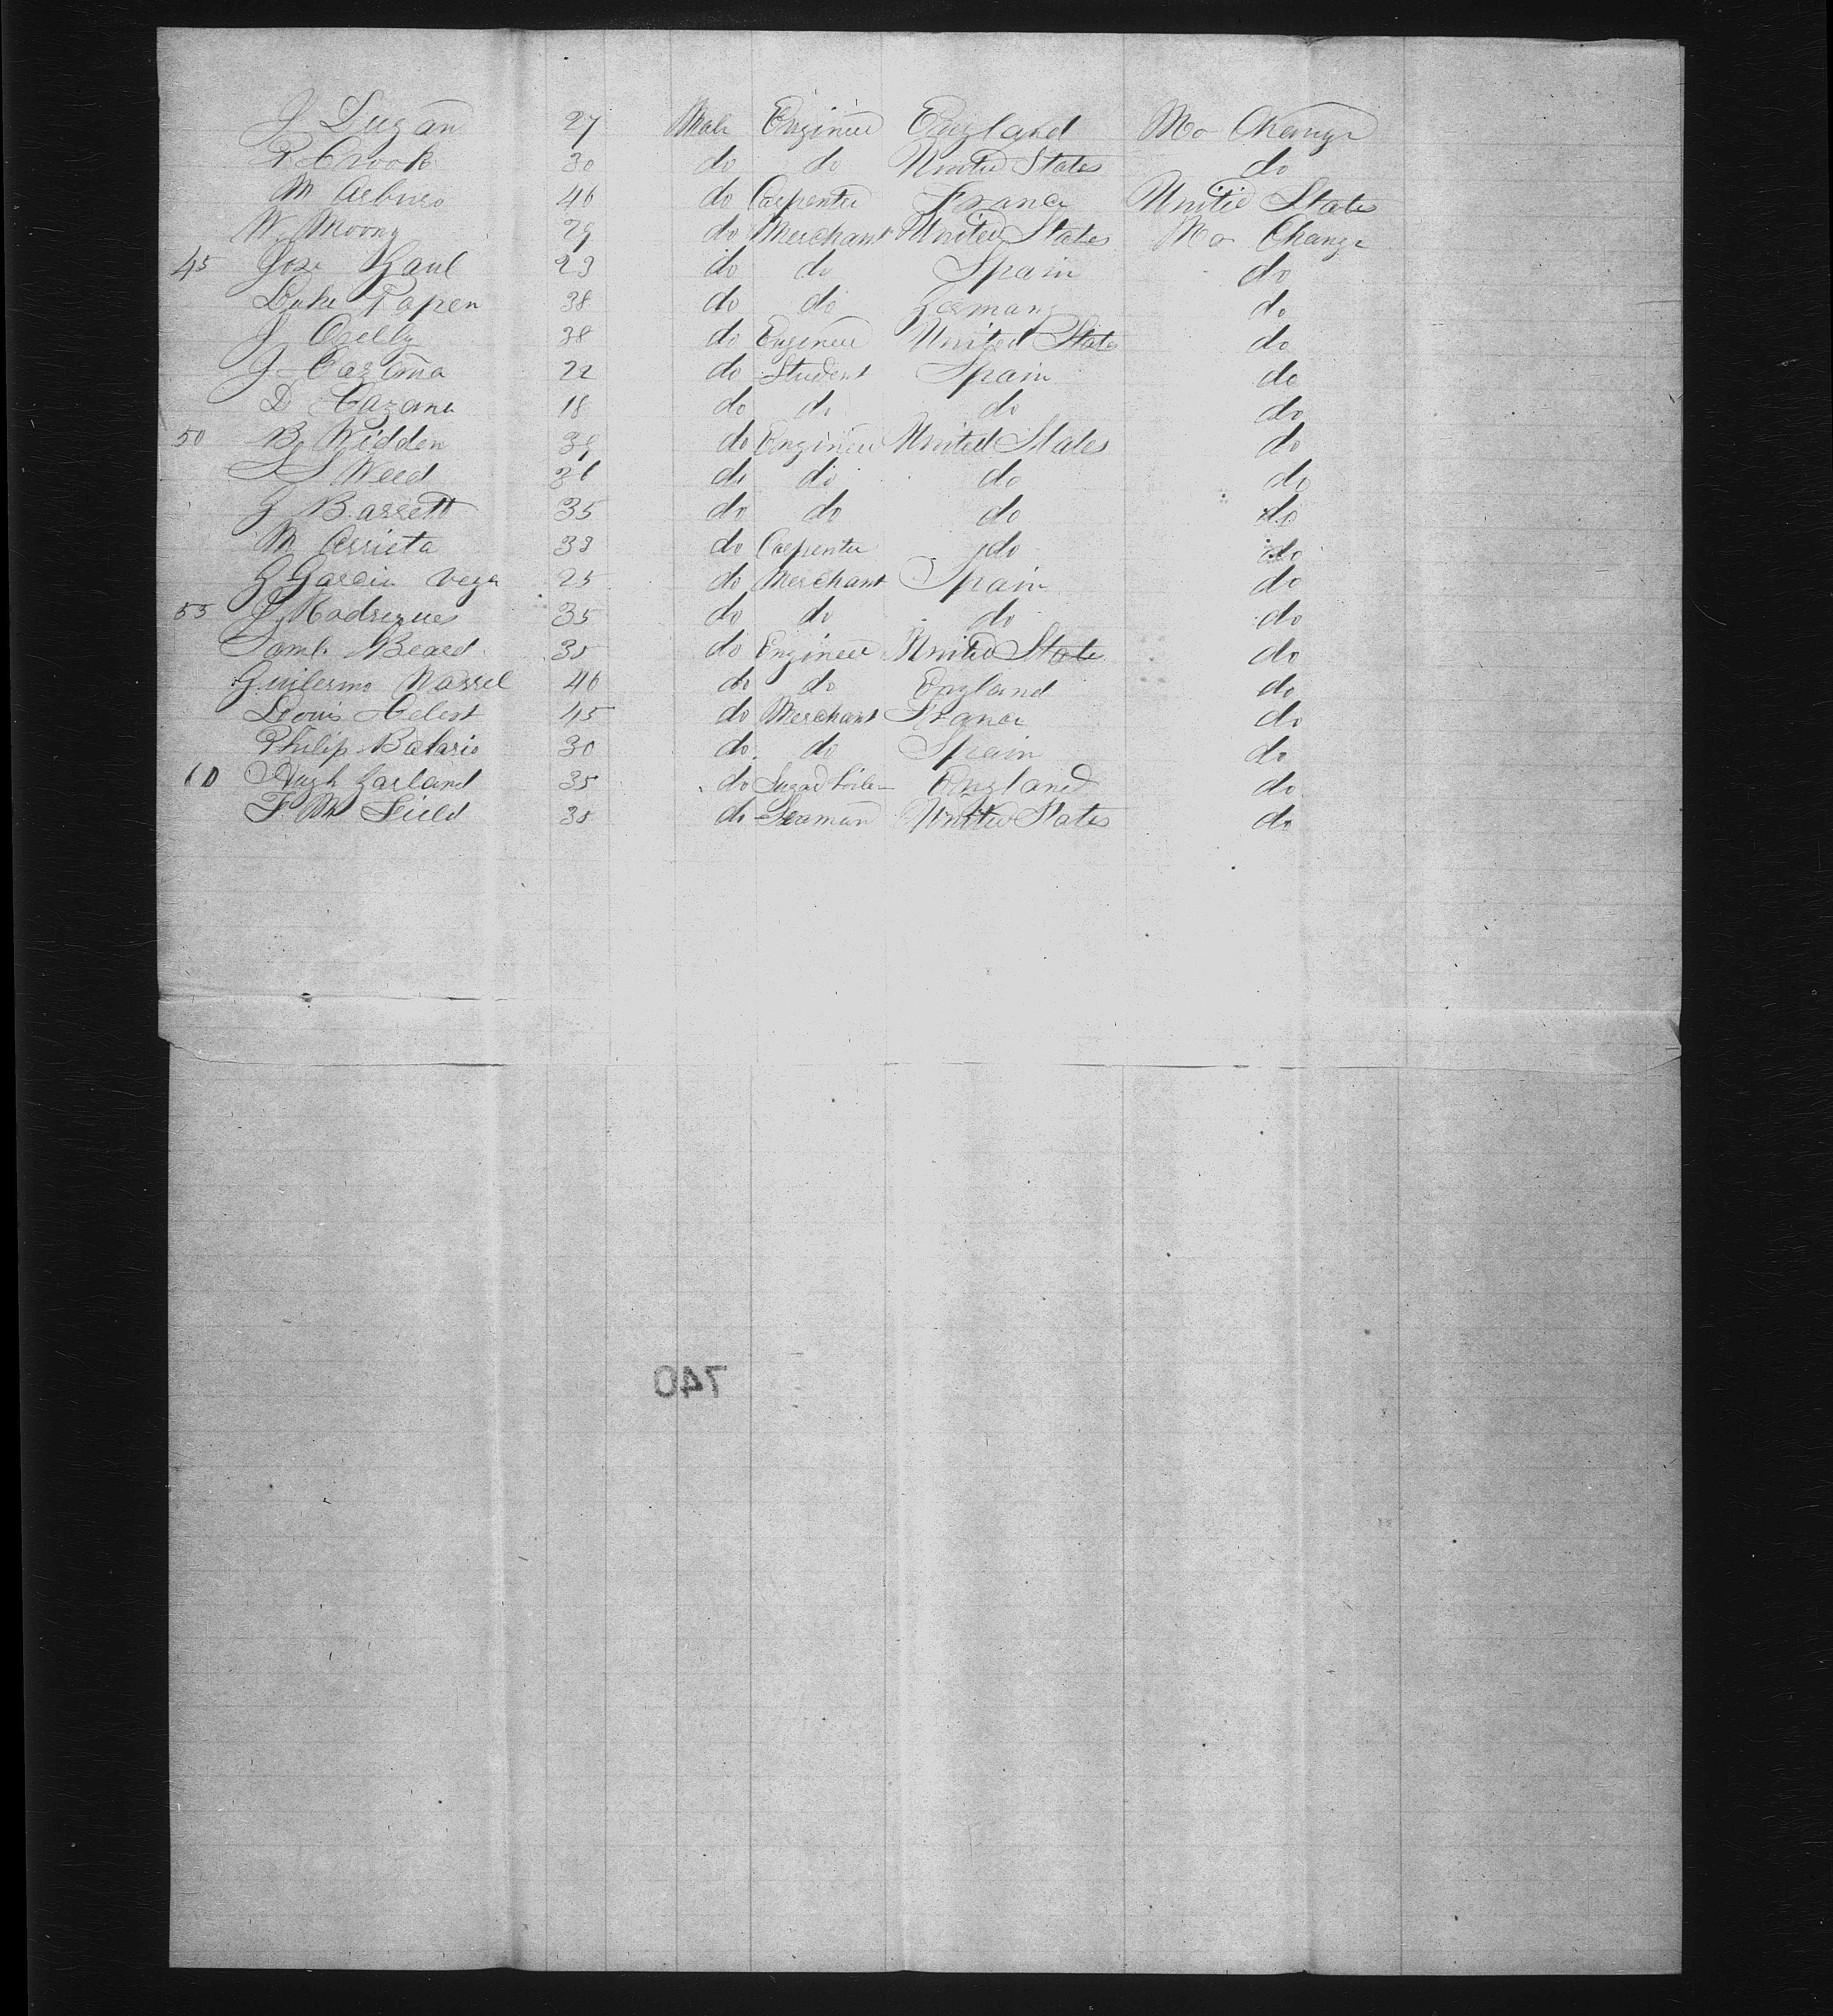 J Dugan 27 Male Engineer England No Change
P Crook 30 do do United States do
M Arburo 46 do Carpenter France United State
W. Moony 29 do Merchant United States No Change
45 Jose Gaul 23 do do Spain do
Duke Papen 38 do do Germany do
J Orelly 38 do Engineer United States do
J. Cazaña 22 do Student Spain do
D Cazana 18 do do do do
50 B. Kidden do Engineer United States do
S Weed 36 do do do do
G Barrett 35 do do do do
M Arrieta 33 do Carpenter do do
G Garcia Vega 25 do Merchant Spain do
55 J. Rodregues 35 do do do do
Saml. Beard 35 do Engineer United State do
Guilermo Narrel 46 do do England do
Louis Celest 45 do Merchant France do
Philip Balario 30 do do Spain do
60 Hugh Garland 35 do Sugar boiler England do
F M Field 35 do Seaman United States do
740